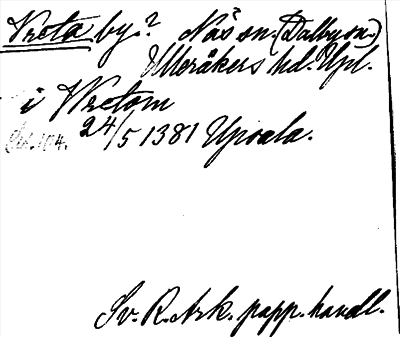 Vreta by? Näs sn. (Dalby sn.)
Ulleråkers hd. Upl.
i Wretom
24/5 1381 Upsala.
Sv. R. Ark. papp. handl.